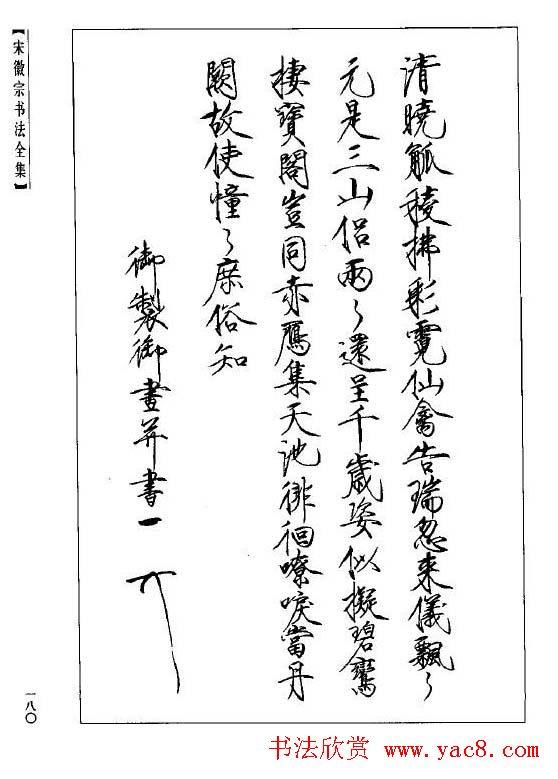 清曉觚稜拂彩霓仙禽告瑞忽來儀飄〻
元是三山侶兩〻還呈千歲姿似擬碧鸞
棲寶閣豈同赤鴈集天池徘徊嘹唳當丹
闕故使憧〻庶俗知
御製御畫并書一
【宋徽宗书法全集】
一八〇
书法欣赏
www.yac8.com